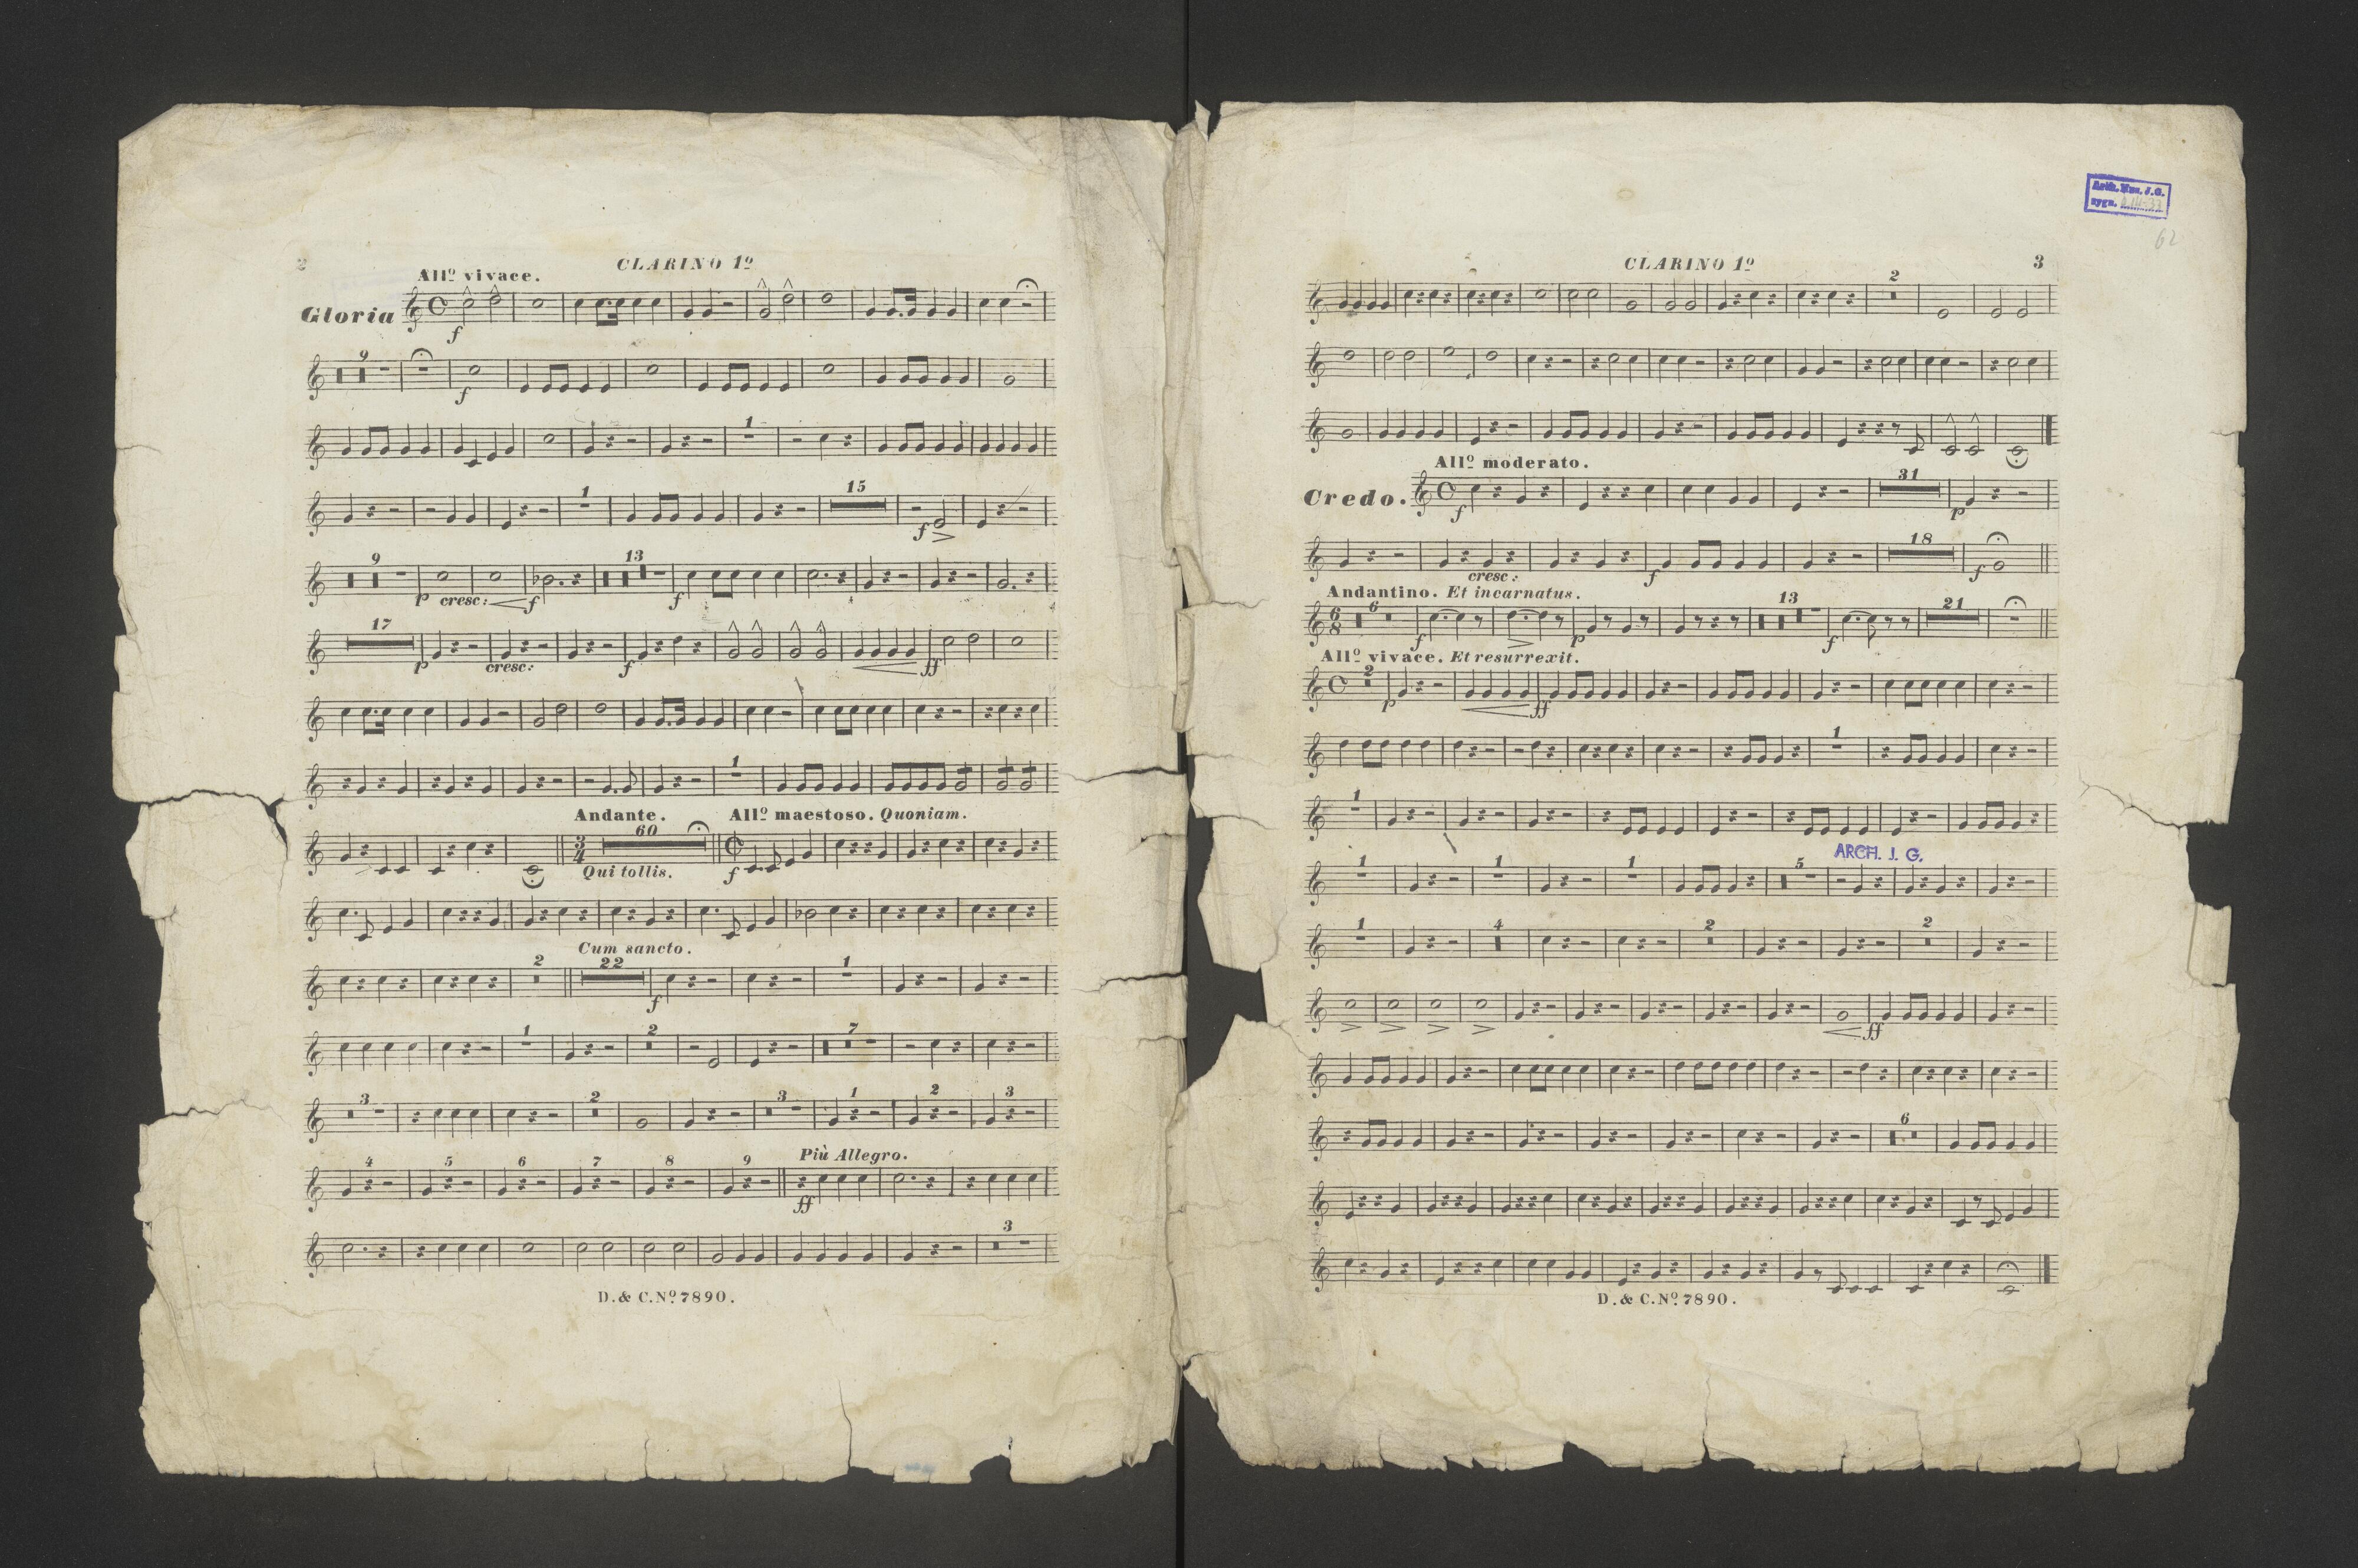 2
CLARINO 1º
Allº vivace.
Gloria
f
9
f
1
1
15
f
9
13
p cresc: f f
17
p cresc: f ff
1
Andante. Allº maestoso. Quoniam.
60
3
4
Qui tollis. f
Cum sancto.
2 22 1
f
1 2 7
3 2 3 1 2 3
4 5 6 7 8 9 Più Allegro.
ff
3
D. & C. Nº 7890.
Arch. Muz. J. G.
sygn.
62
CLARINO 1º
3
2
Allº moderato.
Credo.
31
f p
18
cresc: f f
Andantino. Et incarnatus.
6 8 6 13 21
f p f
Allº vivace. Et resurrexit.
2
p ff
1
1
ARCH. J. G.
1 1 1 5
1 4 2 2
ff
6
D. & C. Nº 7890.